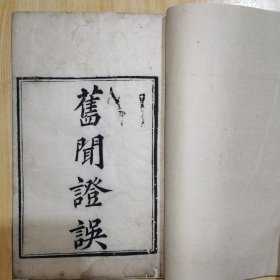 舊聞證誤